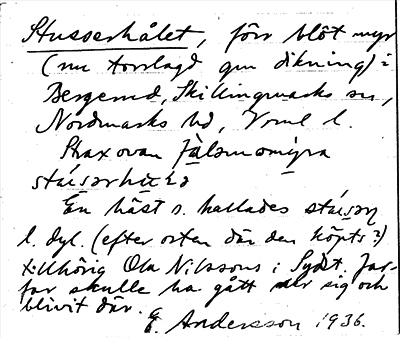 Stusserhålet, förr blöt myr
(nu torrlagd gm dikning) i
Bergerud, Skillingmarks sn,
Nordmarks hd, Vrml l.
Strax ovan
En häst s. kallades
l. dyl. (efter orten där den köpts?)
tillhörig Ola Nilssons i Sydt. far-
far skulle ha gått ner sig och
blivit där.
E. Andersson 1936.